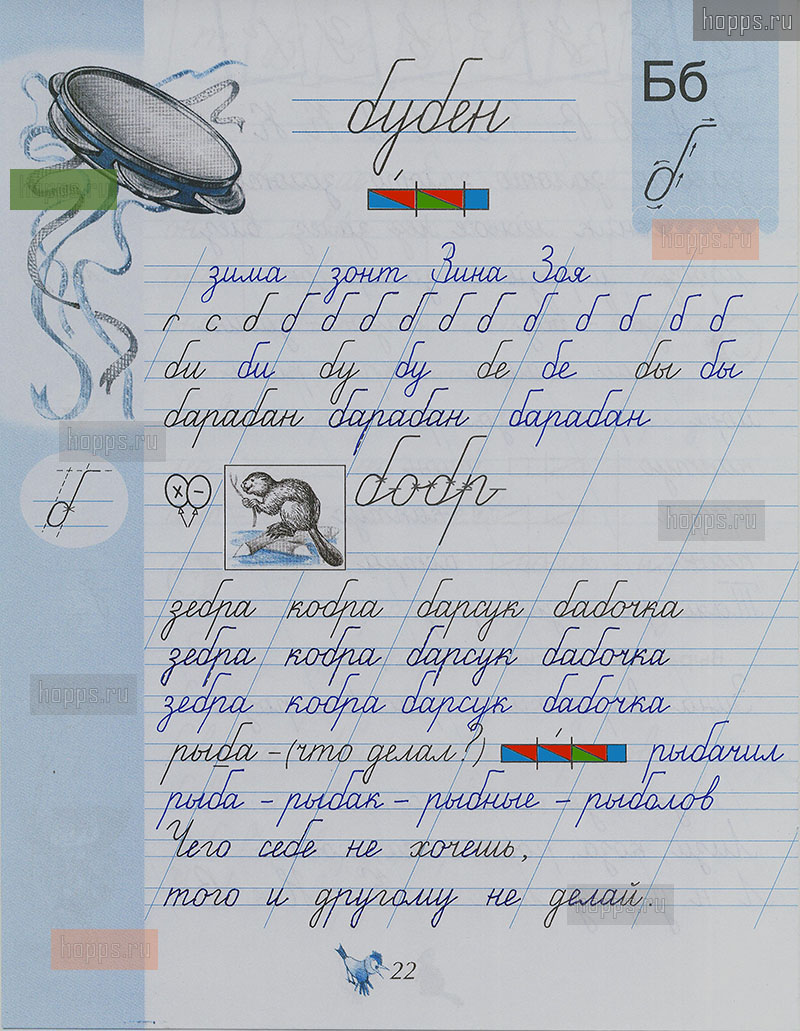 hopps.ru
Бб
бубен
б
hopps.ru
hopps.ru
зима зонт Зина Зоя
г с б б б б б б б б б б б б
би би бу бу бе бе бы бы
барабан барабан барабан
hopps.ru
б
х -
бобр
hopps.ru
зебра кобра барсук бабочка
зебра кобра барсук бабочка
hopps.ru
зебра кобра барсук бабочка
рыба - (что делал?) рыбачил
рыба - рыбак - рыбные - рыболов
Чего себе не хочешь,
того и другому не делай.
hopps.ru
hopps.ru
22